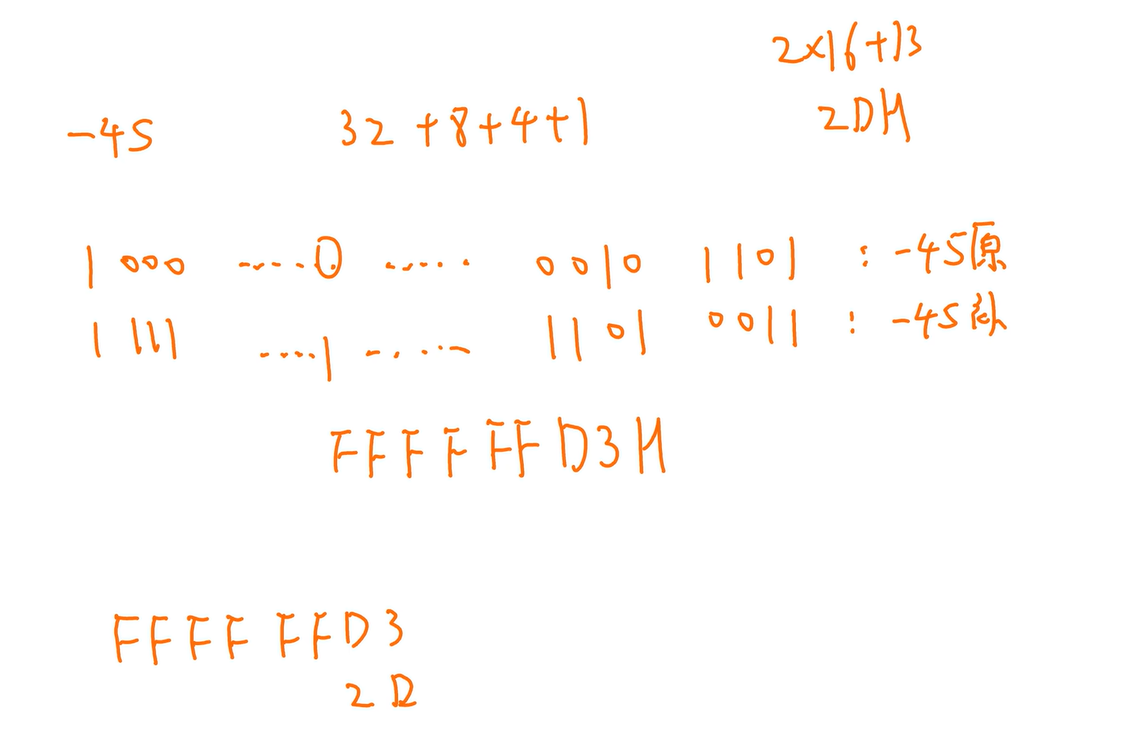 2×16+13
-45 32+8+4+1 2DH
1 000 .....0 ..... 0010 1101 : -45原
1 111 .....1 ..... 1101 0011 : -45补
FFFF FFD3H
FFFF FFD3
2D